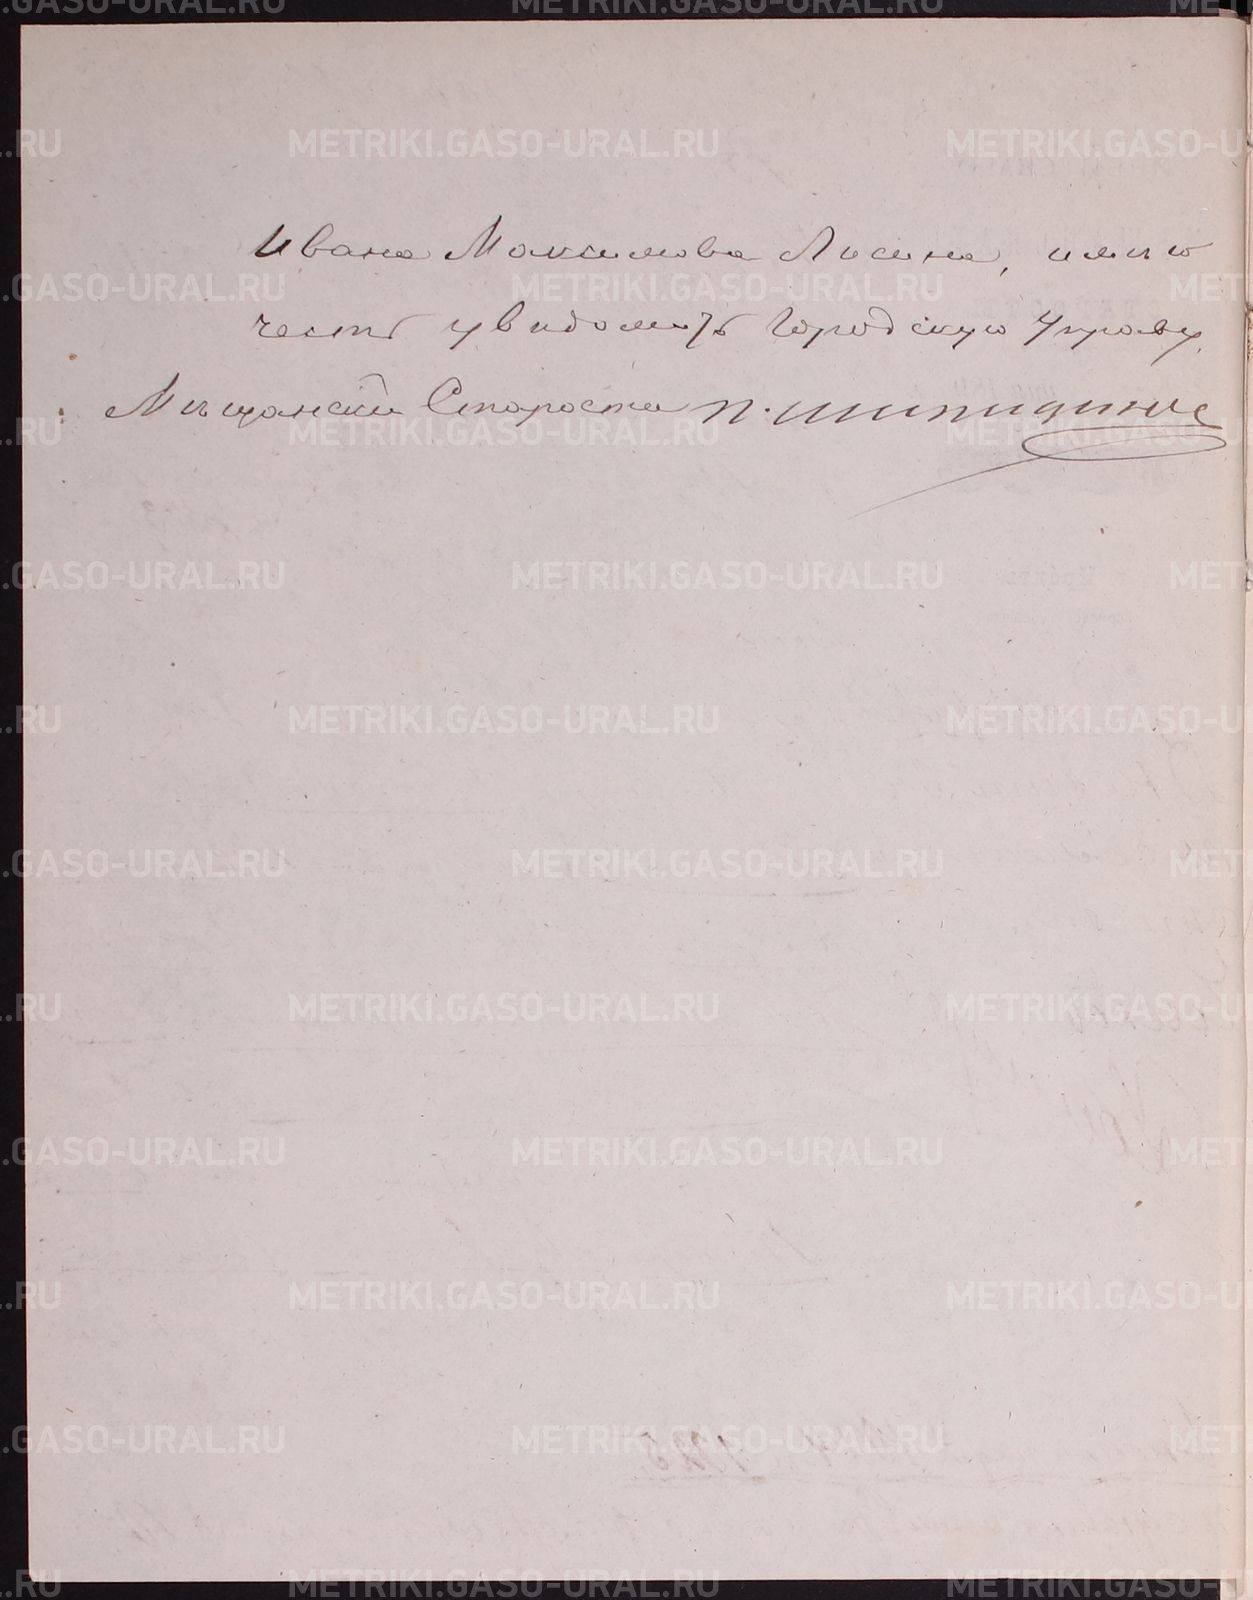 Ивана Максимова Лосина, имѣю
честь увѣдомить Городскую Управу.
Мѣщанскій Староста П.
METRIKI.GASO-URAL.RU